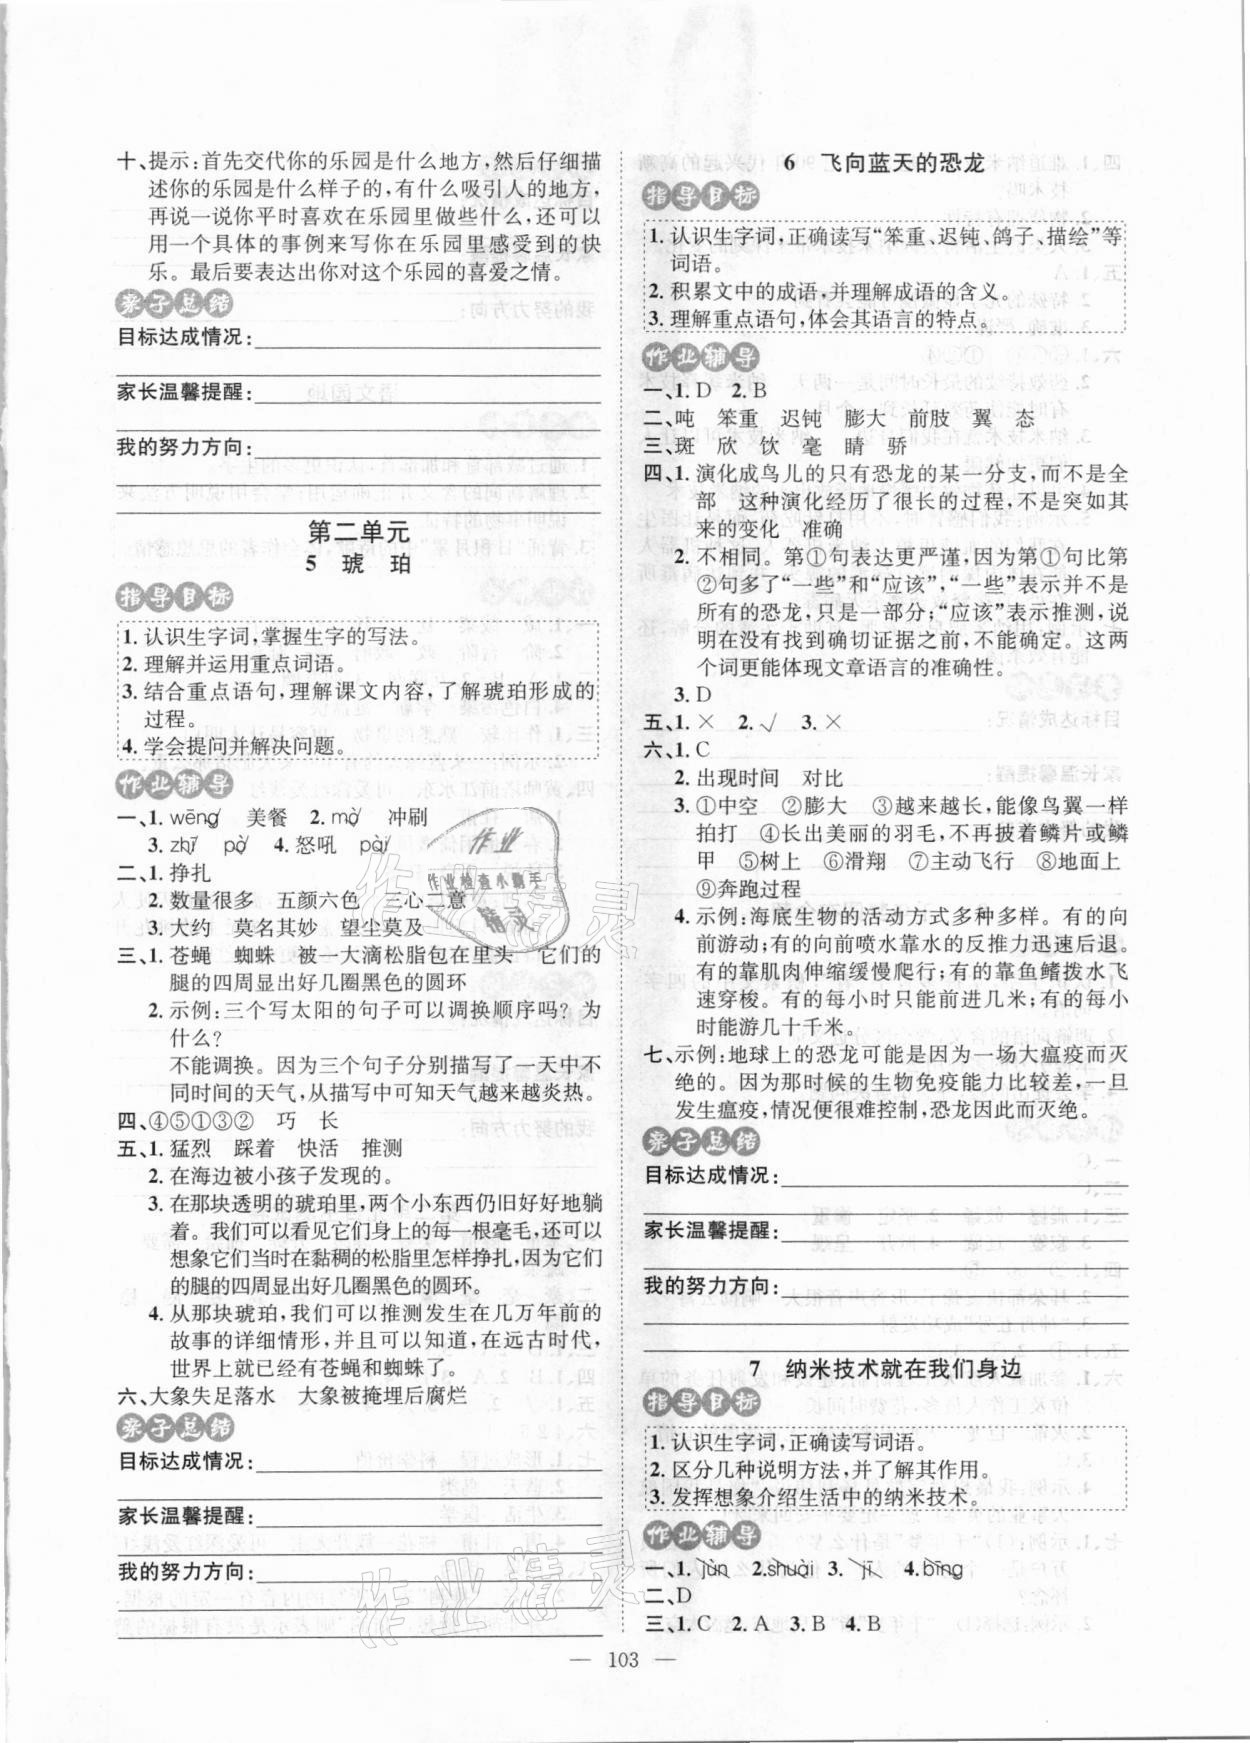 十、提示:首先交代你的乐园是什么地方,然后仔细描
述你的乐园是什么样子的,有什么吸引人的地方,
再说一说你平时喜欢在乐园里做些什么,还可以
用一个具体的事例来写你在乐园里感受到的快
乐。最后要表达出你对这个乐园的喜爱之情。
亲子总结
目标达成情况:
家长温馨提醒:
我的努力方向:
第二单元
5 琥 珀
指导目标
1. 认识生字词,掌握生字的写法。
2. 理解并运用重点词语。
3. 结合重点语句,理解课文内容,了解琥珀形成的
过程。
4. 学会提问并解决问题。
作业辅导
一、1. wēng 美餐 2. mò 冲刷
3. zhī pò 4. 怒吼 pài
二、1. 挣扎
2. 数量很多 五颜六色 三心二意
3. 大约 莫名其妙 望尘莫及
三、1. 苍蝇 蜘蛛 被一大滴松脂包在里头 它们的
腿的四周显出好几圈黑色的圆环
2. 示例:三个写太阳的句子可以调换顺序吗?为
什么?
不能调换。因为三个句子分别描写了一天中不
同时间的天气,从描写中可知天气越来越炎热。
四、④⑤①③② 巧 长
五、1. 猛烈 踩着 快活 推测
2. 在海边被小孩子发现的。
3. 在那块透明的琥珀里,两个小东西仍旧好好地躺
着。我们可以看见它们身上的每一根毫毛,还可以
想象它们当时在黏稠的松脂里怎样挣扎,因为它们
的腿的四周显出好几圈黑色的圆环。
4. 从那块琥珀,我们可以推测发生在几万年前的
故事的详细情形,并且可以知道,在远古时代,
世界上就已经有苍蝇和蜘蛛了。
六、大象失足落水 大象被掩埋后腐烂
亲子总结
目标达成情况:
家长温馨提醒:
我的努力方向:
6 飞向蓝天的恐龙
指导目标
1. 认识生字词,正确读写“笨重、迟钝、鸽子、描绘”等
词语。
2. 积累文中的成语,并理解成语的含义。
3. 理解重点语句,体会其语言的特点。
作业辅导
一、1. D 2. B
二、吨 笨重 迟钝 膨大 前肢 翼 态
三、斑 欣 饮 毫 睛 骄
四、1. 演化成鸟儿的只有恐龙的某一分支,而不是全
部 这种演化经历了很长的过程,不是突如其
来的变化 准确
2. 不相同。第①句表达更严谨,因为第①句比第
②句多了“一些”和“应该”,“一些”表示并不是
所有的恐龙,只是一部分;“应该”表示推测,说
明在没有找到确切证据之前,不能确定。这两
个词更能体现文章语言的准确性。
3. D
五、1. × 2. √ 3. ×
六、1. C
2. 出现时间 对比
3. ①中空 ②膨大 ③越来越长,能像鸟翼一样
拍打 ④长出美丽的羽毛,不再披着鳞片或鳞
甲 ⑤树上 ⑥滑翔 ⑦主动飞行 ⑧地面上
⑨奔跑过程
4. 示例:海底生物的活动方式多种多样。有的向
前游动;有的向前喷水靠水的反推力迅速后退。
有的靠肌肉伸缩缓慢爬行;有的靠鱼鳍拨水飞
速穿梭。有的每小时只能前进几米;有的每小
时能游几十千米。
七、示例:地球上的恐龙可能是因为一场大瘟疫而灭
绝的。因为那时候的生物免疫能力比较差,一旦
发生瘟疫,情况便很难控制,恐龙因此而灭绝。
亲子总结
目标达成情况:
家长温馨提醒:
我的努力方向:
7 纳米技术就在我们身边
指导目标
1. 认识生字词,正确读写词语。
2. 区分几种说明方法,并了解其作用。
3. 发挥想象介绍生活中的纳米技术。
作业辅导
一、1. jùn 2. shuài 3. jí 4. bīng
二、D
三、1. C 2. A 3. B 4. B
— 103 —
作业
作业检查小助手
精灵
作业精灵
作业精灵